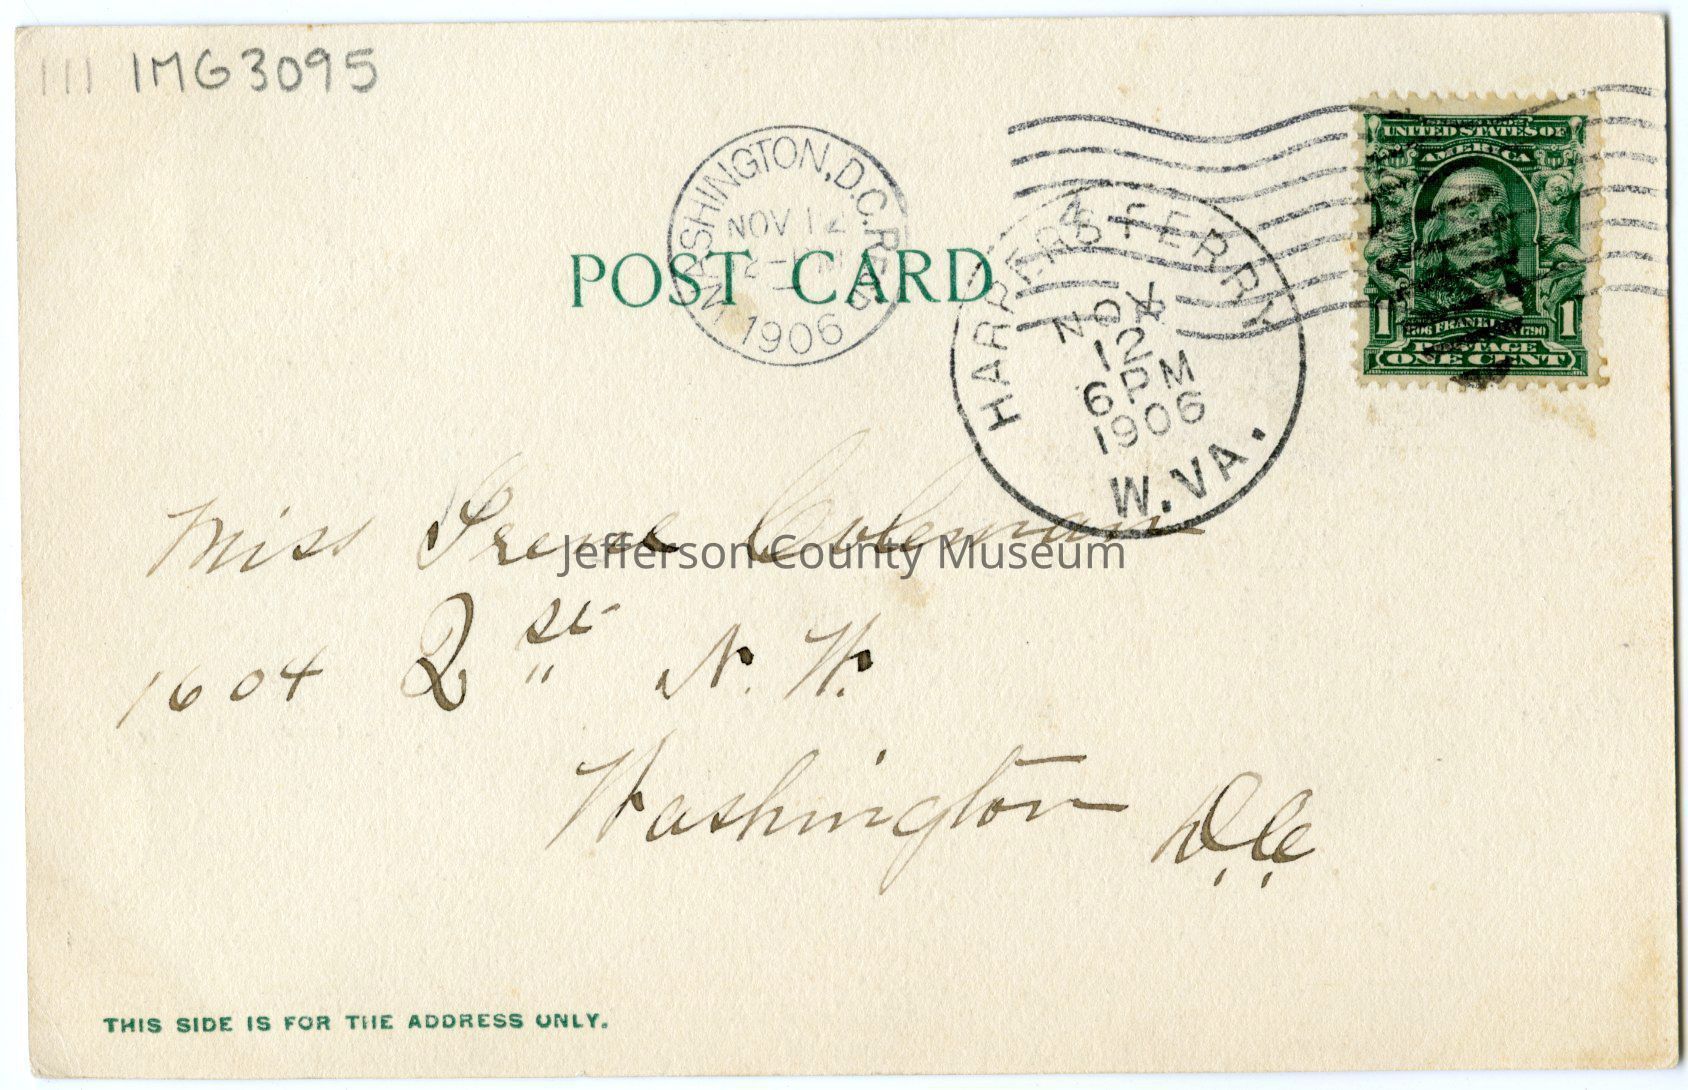 111 IMG3095
WASHINGTON, D.C. REC'D
NOV 12
1906
POST CARD
HARPERS FERRY
NOV
12
6 PM
1906
W. VA.
UNITED STATES OF
AMERICA
1 1706 FRANKLIN 1790 1
POSTAGE
ONE CENT
Miss Irene Coleman
Jefferson County Museum
1604 2 st N. W.
Washington D.C.
THIS SIDE IS FOR THE ADDRESS ONLY.